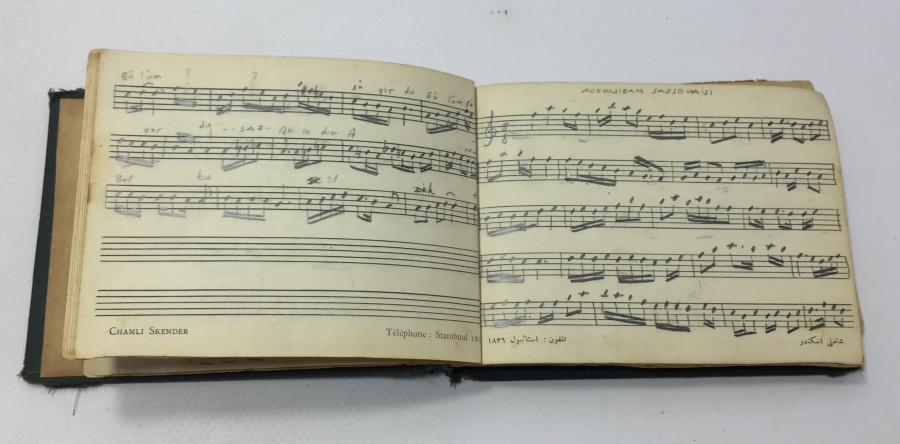 Gü lüm ? ? sü yor du Gü lüm
yor du -- saz- An la dım A
ziek
CHAMLI SKENDER
Téléphone : Stamboul 18
ACEMAŞİRAN SAZSEMAİSİ
تلفون : استانبول ١٨٣٦
شاملى اسكندر